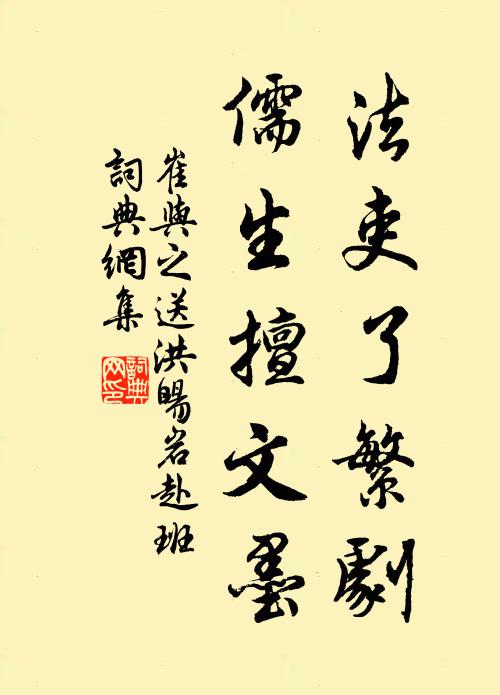 法吏了繁劇
儒生擅文墨
崔與之送洪暘岩赴班
詞典網集
詞典
网印